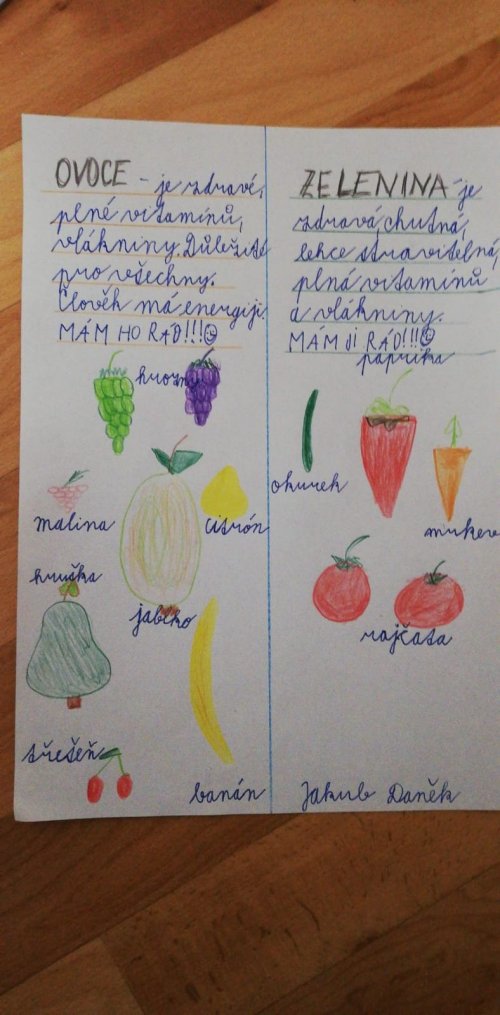 OVOCE - je zdravé,
plné vitamínů,
vlákniny. Důležité
pro všechny.
Člověk má energiji.
MÁM HO RÁD!!!
hrozny
malina
citrón
hruška
jablko
třešeň
banán
ZELENINA - je
zdravá, chutná,
lehce stravitelná,
plná vitamínů
a vlákniny.
MÁM JI RÁD!!!
paprika
okurek
mrkev
rajčata
Jakub Daněk